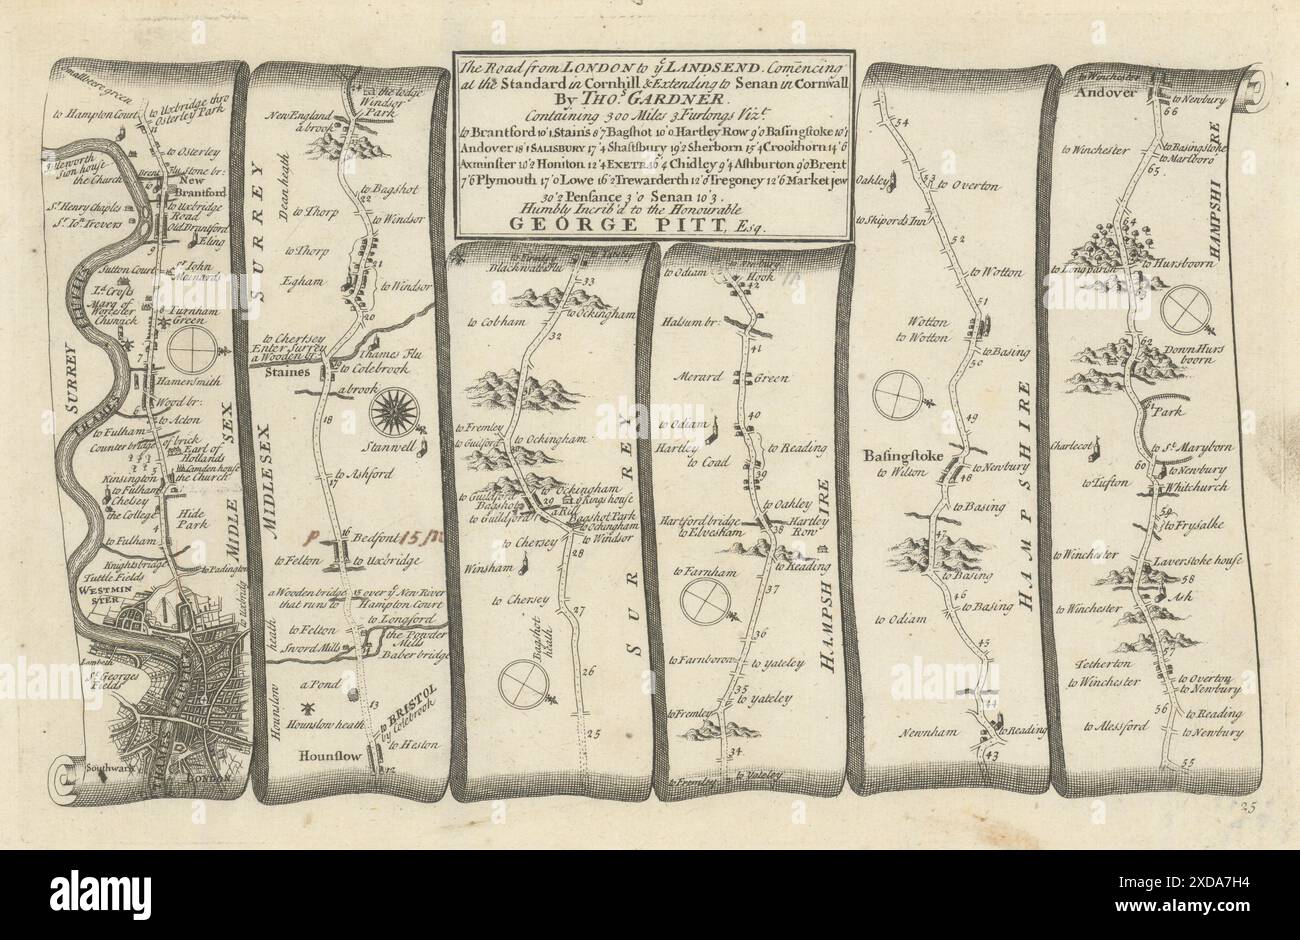 The Road from LONDON to yͤ LANDSEND. Comencing
at the Standard in Cornhill & Extending to Senan in Cornwall
By THOˢ GARDNER.
Containing 300 Miles 3 Furlongs Vizᵗ.
to Brantford 10'1 Stains 8'7 Bagshot 10'0 Hartley Row 9'0 Basingstoke 10'1
Andover 18'1 SALISBURY 17'4 Shaftsbury 19'2 Sherborn 15'4 Crookhorn 14'6
Axminster 10'2 Honiton 12'4 EXETER 16'4 Chidley 9'4 Ashburton 9'0 Brent
7'6 Plymouth 17'0 Lowe 16'2 Trewarderth 12'0 Tregoney 12'6 Market jew
30'2 Pensance 3'0 Senan 10'3.
Humbly Inscrib'd to the Honourable
GEORGE PITT, Esq.
Smallbeere green
to Uxbridge thro
Osterley Park
to Hampton Court
11
to Osterley
Isleworth
Sion house
the Church
Brent Flu
stone br:
10
New
Brantford
Sʳ Henry Chaples
to Uxbridge
Road
Old Branford
Sʳ Joⁿ Trevers
Eling
9
Sutton Court
Sʳ John
Meinards
Lᵈ Crofts
Marq of
Worcester
Chiswick
8
Turnham
Green
RIVER
7
SURREY
Hamersmith
Wood br:
THAMES
to Acton
to Fulham
Counter bridge
of brick
Earl of
Hollands
Camden house
the Church
Kinsington
to Fulham
Chelsey
the College
Hide
Park
4
to Fulham
Knightsbridge
to Padington
Tuttle Fields
WESTMIN
STER
MIDLE SEX
to Uxbridg
Lambeth
Sᵗ Georges
Fields
Southwark
THAMES FLUVIUS
LONDON
SURREY
to the lodge
Windsor
Park
New England
a brook
Dean heath
to Bagshot
22
to Windsor
to Thorp
to Thorp
21
Egham
to Windsor
20
to Chertsey
Enter Surrey
a Wooden br:
Thames Flu
to Colebrook
Staines
a brook
18
Stanwell
MIDLESEX
to Ashford
17
P
16
Bedfont
to Felton
to Uxbridge
a Wooden bridge
that runs to
15 over yͤ New River
Hampton Court
to Longford
to Felton
the Powder
Mills
Sword Mills
Baber bridge
a Pond
Hounslow heath
13
Hounslow heath
to BRISTOL
by Colebrook
Hounslow
to Heston
12
to Fremley
to Yateley
Blackwater flu
33
to Ockingham
to Cobham
32
to Fremley
to Guilford
to Ockingham
to Guildford
Bagshot
to Guildford
to Ockingham
29
yͤ Kings house
a Rill
Bagshot Park
to Ockingham
to Windsor
to Chersey
28
Winsham
to Chersey
27
Bagshot
heath
26
25
SURREY
to Odiam
Hook
42
Halsum br:
41
Merard
Green
40
to Odiam
Hartley
to Reading
to Coad
39
to Oakley
Hartford bridge
to Elvesham
Hartley
Row
38
to Reading
to Farnham
37
36
to Farnborow
to Yateley
35
to Yateley
to Fremley
34
to Fremley
to Yateley
HAMPSHIRE
54
Oakley
53
to Overton
to Skipords Inn
52
to Wotton
51
Wotton
to Wotton
to Basing
50
49
Basingstoke
to Wilton
to Newbury
48
to Basing
47
to Basing
46
to Basing
to Odiam
45
44
Newnham
to Reading
43
HAMPSHIRE
to Winchester
Andover
to Newbury
66
to Basingstoke
to Marlboro
to Winchester
65
64
HAMPSHIRE
to Longparish
to Hursboorn
62
Down Hurs
boorn
61
Park
Charlecot
to Sᵗ Maryborn
60
to Newbury
Whitchurch
to Tufton
59
to Frysalke
to Winchester
Laverstoke house
58
Ash
to Winchester
57
Tetherton
to Winchester
to Overton
to Newbury
56
to Reading
to Alessford
to Newbury
55
25
alamy
Image ID: 2XDA7H4
www.alamy.com